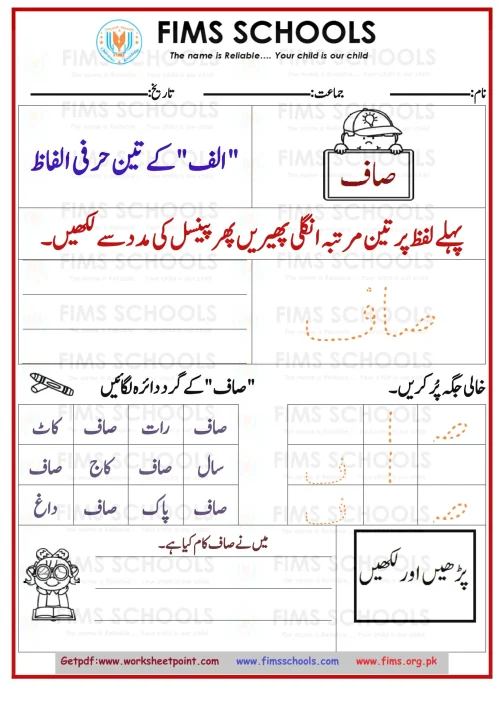 FIMS SCHOOLS
The name is Reliable.... Your child is our child
نام: جماعت: تاریخ:
صاف
"الف" کے تین حرفی الفاظ
پہلے لفظ پر تین مرتبہ انگلی پھیریں پھر پینسل کی مدد سے لکھیں۔
صاف
خالی جگہ پُر کریں۔
"صاف" کے گرد دائرہ لگائیں
صـ ا
ا ف
صـ ف
صاف رات صاف کاٹ
سال صاف کاج صاف
صاف پاک صاف داغ
پڑھیں اور لکھیں
میں نے صاف کام کیا ہے۔
Getpdf:www.worksheetpoint.com www.fimsschools.com www.fims.org.pk